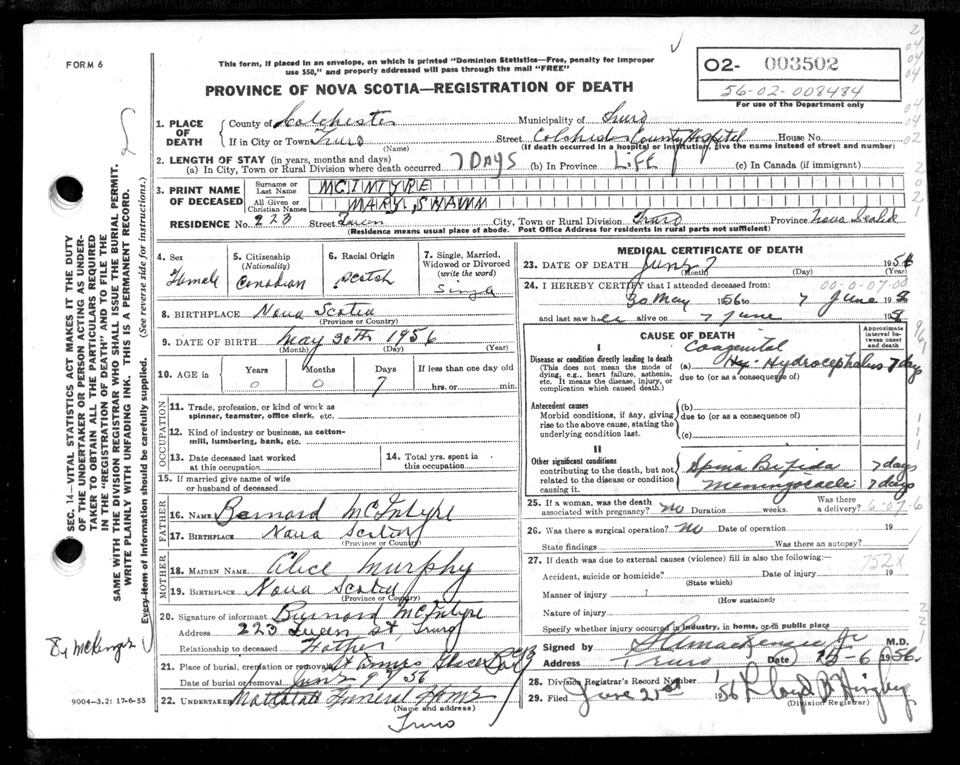 FORM 6
This form, if placed in an envelope, on which is printed "Dominion Statistics—Free, penalty for improper
use $50," and properly addressed will pass through the mail "FREE"
PROVINCE OF NOVA SCOTIA—REGISTRATION OF DEATH
O2- 003502
56-02-008484
For use of the Department only
SEC. 14—VITAL STATISTICS ACT MAKES IT THE DUTY
OF THE UNDERTAKER OR PERSON ACTING AS UNDER-
TAKER TO OBTAIN ALL THE PARTICULARS REQUIRED
IN THE "REGISTRATION OF DEATH" AND TO FILE THE
SAME WITH THE DIVISION REGISTRAR WHO SHALL ISSUE THE BURIAL PERMIT.
WRITE PLAINLY WITH UNFADING INK. THIS IS A PERMANENT RECORD.
Every item of Information should be carefully supplied. (See reverse side for instructions.)
1. PLACE OF DEATH
County of Colchester Municipality of Truro
If in City or Town Truro Street Colchester County Hospital House No.
(Name) (If death occurred in a hospital or institution, give the name instead of street and number)
2. LENGTH OF STAY (in years, months and days)
(a) In City, Town or Rural Division where death occurred 7 DAYS (b) In Province LIFE (c) In Canada (if immigrant)
3. PRINT NAME OF DECEASED
Surname or Last Name MCINTYRE
All Given or Christian Names MARY, SHAWN
RESIDENCE No. 223 Street Queen City, Town or Rural Division Truro Province Nova Scotia
(Residence means usual place of abode. Post Office Address for residents in rural parts not sufficient)
4. Sex Female
5. Citizenship (Nationality) Canadian
6. Racial Origin Scotch
7. Single, Married, Widowed or Divorced (write the word) Single
8. BIRTHPLACE Nova Scotia
(Province or Country)
9. DATE OF BIRTH May 30th 1956
(Month) (Day) (Year)
10. AGE in Years 0 Months 0 Days 7 If less than one day old hrs. or min.
OCCUPATION
11. Trade, profession, or kind of work as spinner, teamster, office clerk, etc.
12. Kind of industry or business, as cotton-mill, lumbering, bank, etc.
13. Date deceased last worked at this occupation
14. Total yrs. spent in this occupation
15. If married give name of wife or husband of deceased
FATHER
16. NAME Bernard McIntyre
17. BIRTHPLACE Nova Scotia
(Province or Country)
MOTHER
18. MAIDEN NAME Alice Murphy
19. BIRTHPLACE Nova Scotia
(Province or Country)
20. Signature of informant Bernard McIntyre
Address 223 Queen St, Truro
Relationship to deceased Father
21. Place of burial, cremation or removal
Date of burial or removal June 9 56
22. UNDERTAKER Funeral Home
(Name and address)
Truro
9004-3.2: 17-6-55
MEDICAL CERTIFICATE OF DEATH
23. DATE OF DEATH June 7 1956
(Month) (Day) (Year)
24. I HEREBY CERTIFY that I attended deceased from: 00-0-07-00
30 May 1956 to 7 June 19
and last saw h alive on 7 June 19
CAUSE OF DEATH
Approximate interval between onset and death
I
Disease or condition directly leading to death
(This does not mean the mode of dying, e.g., heart failure, asthenia, etc. It means the disease, injury, or complication which caused death.)
Congenital
(a) Hydrocephalus 7 days
due to (or as a consequence of)
Antecedent causes
Morbid conditions, if any, giving rise to the above cause, stating the underlying condition last.
(b)
due to (or as a consequence of)
(c)
II
Other significant conditions
contributing to the death, but not related to the disease or condition causing it.
Spina Bifida 7 days
Meningocele 7 days
25. If a woman, was the death associated with pregnancy? no Duration weeks. Was there a delivery?
26. Was there a surgical operation? no Date of operation 19
State findings Was there an autopsy?
27. If death was due to external causes (violence) fill in also the following:—
752X
Accident, suicide or homicide? Date of injury 19
(State which)
Manner of injury
(How sustained)
Nature of injury
Specify whether injury occurred in industry, in home, or in public place
Signed by M.D.
Address Truro Date 1956
28. Division Registrar's Record Number
29. Filed June 21st 1956
(Division Registrar)